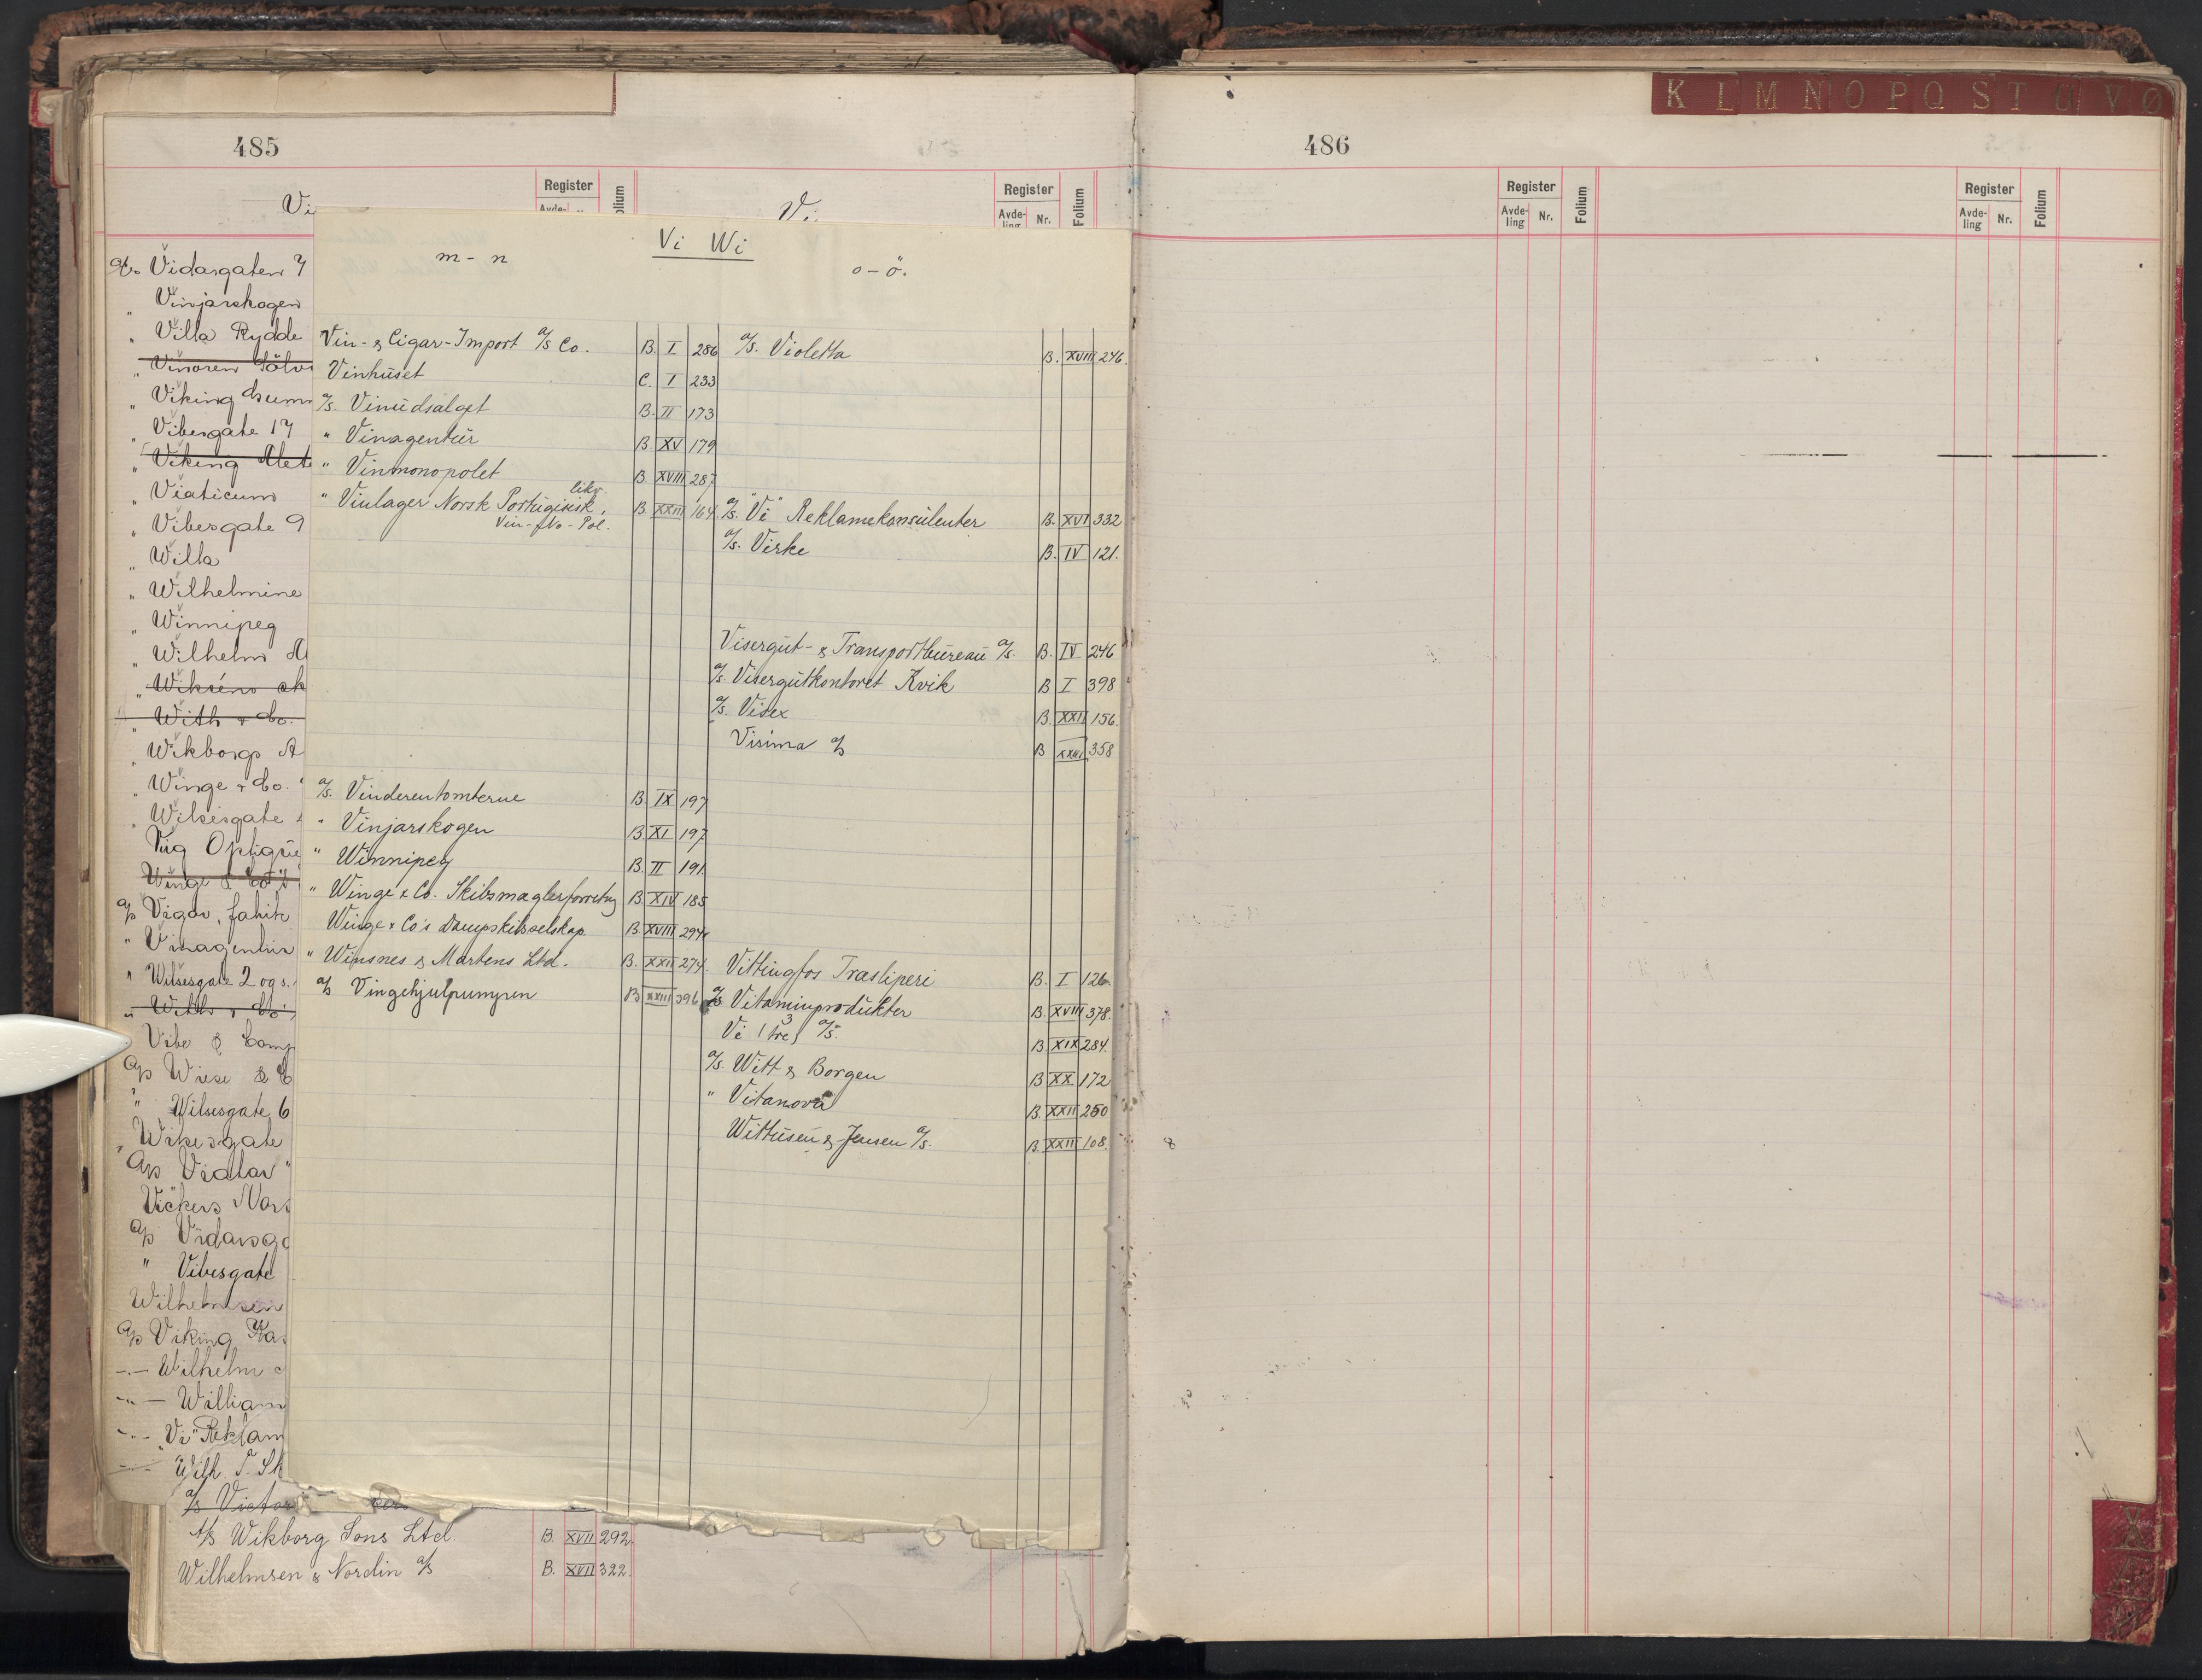 485
Register
Folium
Vi
Vi
Register
Avde-ling Nr. Folium
A/s Vidarsgaten 7
" Vinjarskogen
" Villa Rydde
" Vinoren Sölv
" Viking Gumm
" Vibesgate 17
" Viking
" Viaticum
" Vibesgate 9
" Willa
" Wilhelmine
" Winnipeg
" Wilhelm A
" With & Co.
" Wikborgs A
" Winge & Co.
" Wilsesgate
Winge & Co's
A/s Vigor, fabrik
" Vinagentur
" Wilsesgate 2 og
" With & Co
Vibe & Comp
A/s Wiese & C
" Wilsesgate 6
" Wibesgate
A/s Vialav
Vickers Nors
A/s Vidarsga
" Vibesgate
Wilhelmsen
A/s Viking Kas
-"- Wilhelm
-"- William
-"- "Vi" Reklam
-"- Wilh. T. Sk
A/s Victor
A/s Wikborg Sons Ltd. B. XVII 292.
Wilhelmsen & Nordin A/s B. XVII 322.
Vi Wi
m - n
o - ö.
Vin- & Cigar-Import A/s Co. B. I 286
Vinhuset C. I 233
A/s. Vinudsalget B. II 173
" Vinagentur B. XV 179
" Vinmonopolet B. XVIII 287
likv.
" Vinlager Norsk Portugisisk, B. XXIII 164
Vin-No-Pol.
A/s. Vinderentomterne B. IX 197
" Vinjarskogen B. XI 197
" Winnipeg B. II 191
" Winge & Co. Skibsmaglerforretng B. XIV 185
Winge & Co's Dampskibsselskap B. XVIII 294
" Winsnes & Martens Ltd. B. XXII 274.
A/s Vingehjulpumpen B XXIII 396
A/s. Violetta B. XVIII 246.
A/s. "Vi" Reklamekonsulenter B. XVI 332
A/s. Virke B. IV 121.
Visergut- & Transportbureau A/s. B. IV 246
A/s. Visergutkontoret Kvik B I 398
A/s. Visex B. XXII 156.
Visima A/s B XXIII 358
Vittingfos Træsliperi B. I 126.
A/s Vitaminprodukter B. XVIII 378.
3
Vi (tre) A/s. B. XIX 284.
A/s. Witt & Borgen B. XX 172
" Vitanova B. XXII 250
Wittusen & Jensen A/s. B. XXII 108.
486
Register
Avde-ling Nr. Folium
Register
Avde-ling Nr. Folium
K L M N O P Q S T U V Ø